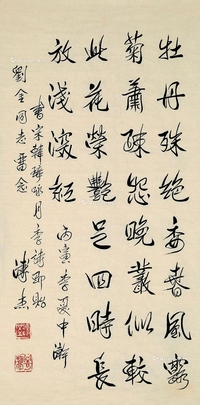 牡丹殊絕委春風露
菊蕭疎怨晚叢似較
此花榮艷足四時長
放淺深紅
丙寅季夏中澣
書宋韓琦詠月季詩即貽
劉全同志留念
溥杰